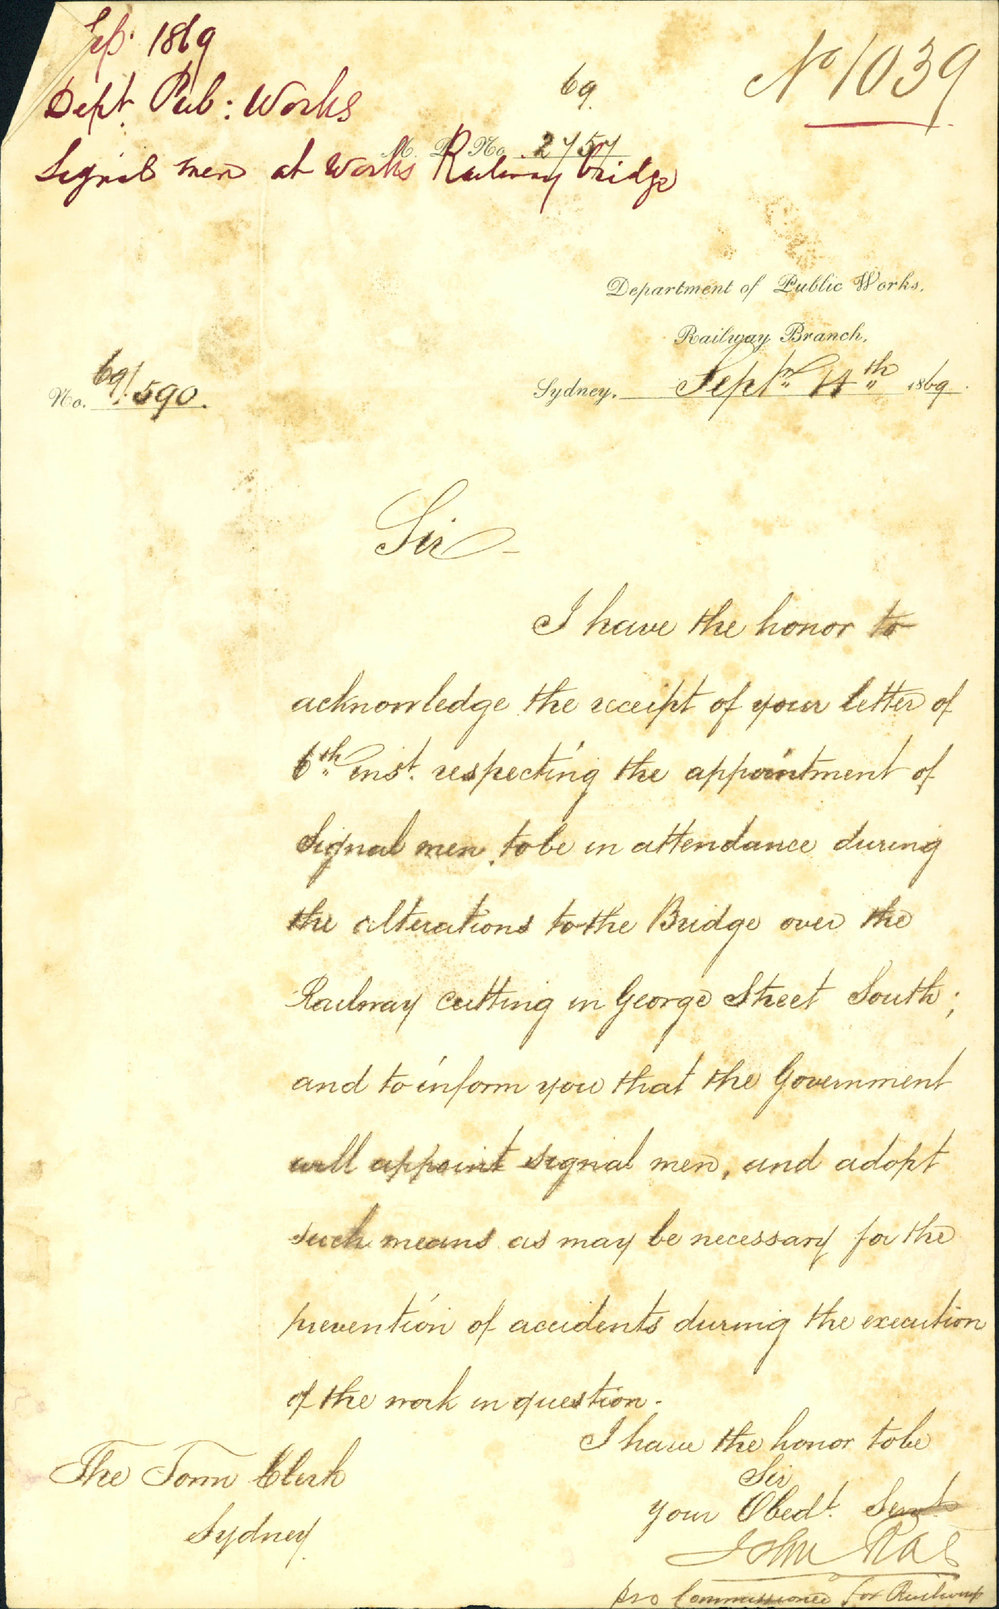 Sep. 1869
No 1039
Dept. Pub: Works
69
M. P. No. 2757
Signal men at Works Railway bridge
Department of Public Works.
Railway Branch,
No. 69/590.
Sydney. Septr. 14th 1869.
Sir
I have the honor to
acknowledge the receipt of your letter of
6th inst. respecting the appointment of
Signal men, to be in attendance during
the alterations to the Bridge over the
Railway cutting in George Street South;
and to inform you that the Government
will appoint signal men, and adopt
such means as may be necessary for the
prevention of accidents during the execution
of the work in question.
I have the honor to be
Sir
your Obedt. Servt.
John Rae
pro Commissioner for Railways
The Town Clerk
Sydney.